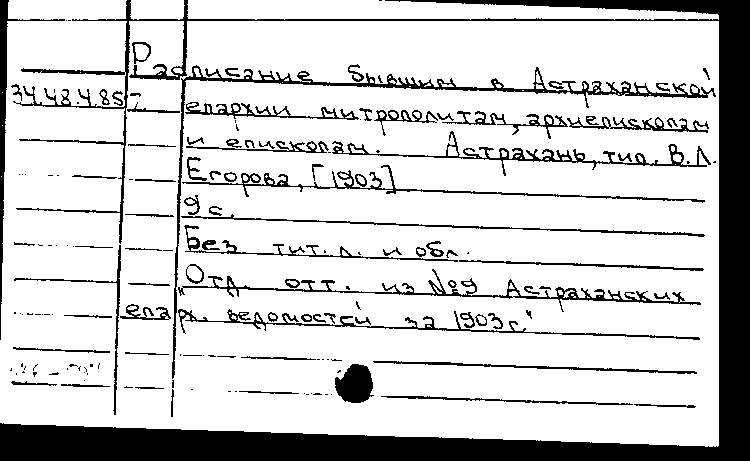 Расписание бывшим в Астраханской
34.48.4.857. епархии митрополитам, архиепископам
и епископам. Астрахань, тип. В.Л.
Егорова, [1903]
9 с.
Без тит. л. и обл.
"Отд. отт. из №9 Астраханских
епарх. ведомостей за 1903 г."